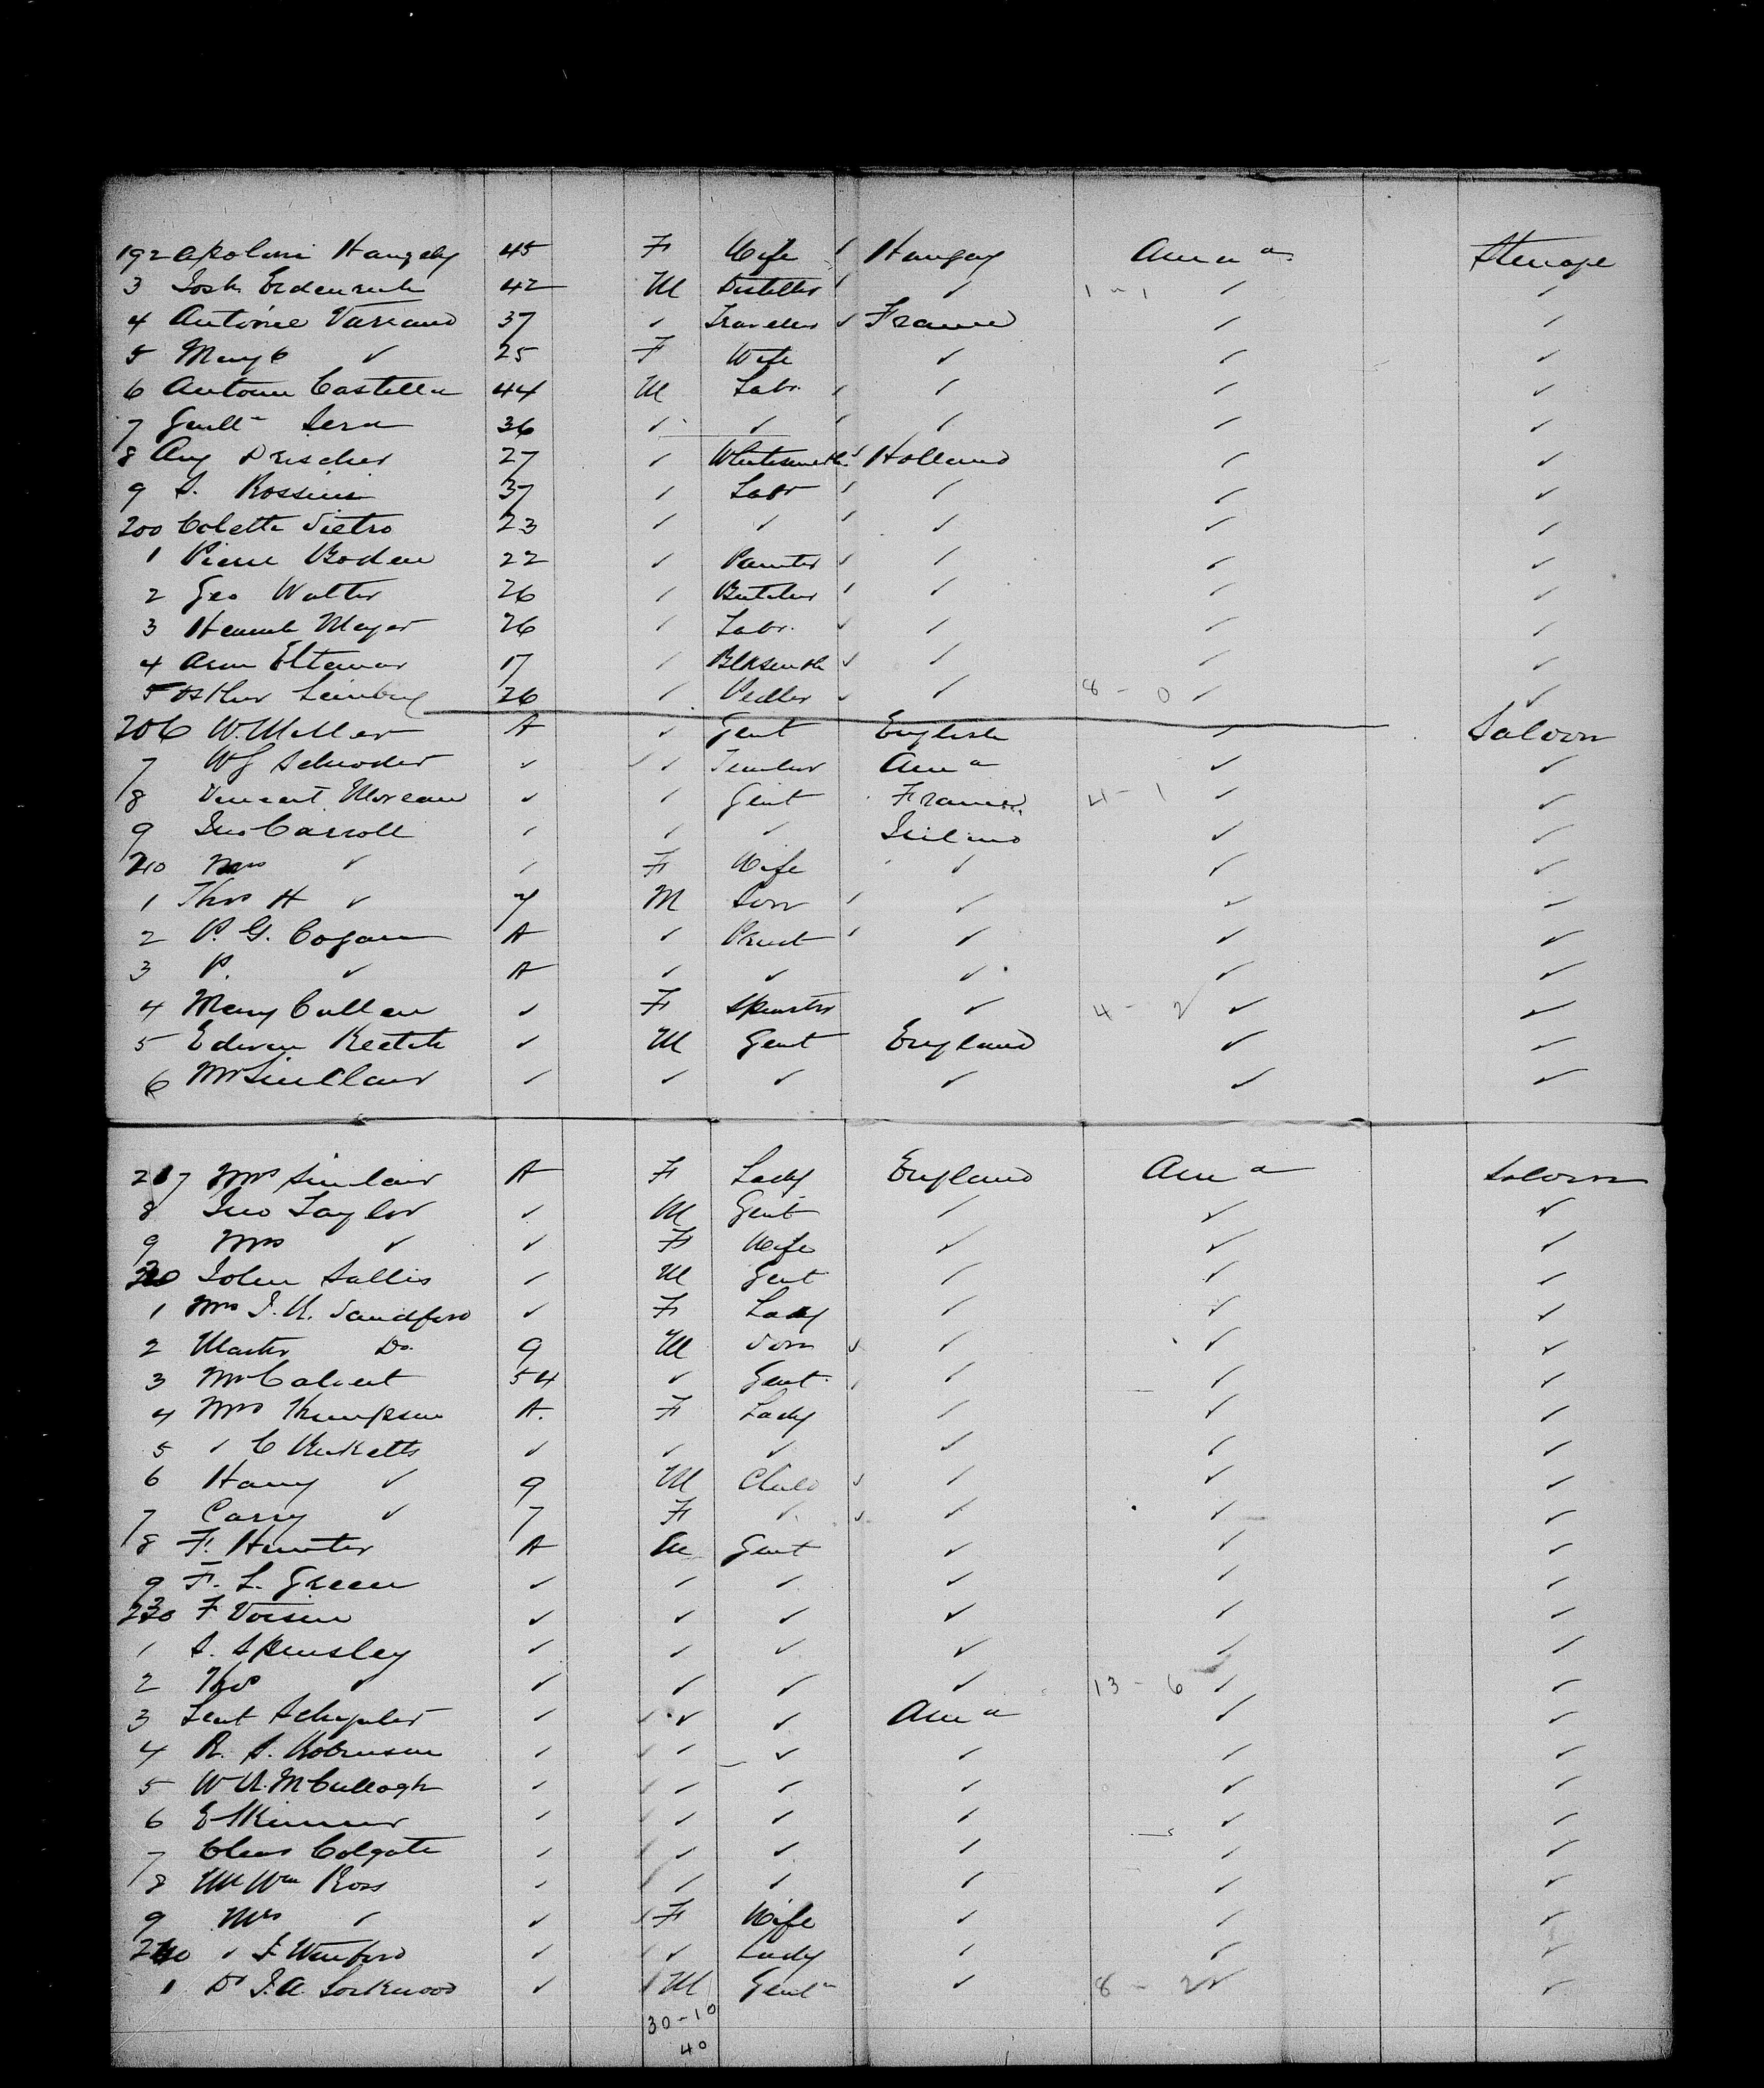 192 Apoloni Hangely 45 F Wife ✓ Hungay Ama Sterage
3 Josh 42 M Distiller ✓ 1 - 1 ✓ ✓
4 Antoine Variand 37 ✓ Traveller ✓ France ✓ ✓
5 Mary C ✓ 25 F Wife ✓ ✓ ✓
6 Antoine Castella 44 M Labr. ✓ ✓ ✓ ✓
7 36 ✓ ✓ ✓ ✓ ✓ ✓
8 Aug Drischer 27 ✓ Whitesmith ✓ Holland ✓ ✓
9 S. Rossini 37 ✓ Labr ✓ ✓ ✓ ✓
200 Colette Pietro 23 ✓ ✓ ✓ ✓ ✓ ✓
1 Pierre Boden 22 ✓ Painter ✓ ✓ ✓ ✓
2 Geo Walter 26 ✓ Butcher ✓ ✓ ✓ ✓
3 Heinrich Meyer 26 ✓ Labr. ✓ ✓ ✓ ✓
4 17 ✓ Blksmith ✓ ✓ ✓ ✓
5 26 ✓ Pedler ✓ ✓ 8 - 0 ✓ ✓
206 W. Miller A ✓ Gent English ✓ Saloon
7 W G Schroder ✓ ✓ ✓ Ama ✓ ✓
8 Vincent Moreau ✓ ✓ Gent France 4 - 1 ✓ ✓
9 Jno Carroll ✓ ✓ ✓ Ireland ✓ ✓
210 Mrs ✓ ✓ F Wife ✓ ✓ ✓
1 Thos H ✓ 7 M Son ✓ ✓ ✓ ✓
2 P. G. Cogan A ✓ Priest ✓ ✓ ✓ ✓
3 P. ✓ A ✓ ✓ ✓ ✓ ✓
4 Mary Cullen ✓ F Spinster ✓ 4 - 2 ✓ ✓
5 Edwin Keetch ✓ M Gent England ✓ ✓
6 Mr Sinclair ✓ ✓ ✓ ✓ ✓ ✓
217 Mrs Sinclair A F Lady England Ama Saloon
8 Jno Taylor ✓ M Gent ✓ ✓ ✓
9 Mrs ✓ ✓ F Wife ✓ ✓ ✓
220 John Sallis ✓ M Gent ✓ ✓ ✓
1 Mrs J. U. Sandford ✓ F Lady ✓ ✓ ✓
2 Master Do. 9 M Son ✓ ✓ ✓ ✓
3 Mr Calvert 54 ✓ Gent. ✓ ✓ ✓ ✓
4 Mrs Thompson A. F Lady ✓ ✓ ✓
5 ✓ C Ricketts ✓ ✓ ✓ ✓ ✓ ✓
6 Harry ✓ 9 M Child ✓ ✓ ✓ ✓
7 Carry ✓ 7 F ✓ ✓ ✓ ✓ ✓
8 F. Hunter A M Gent ✓ ✓ ✓
9 F. L. Green ✓ ✓ ✓ ✓ ✓ ✓
230 F Voisin ✓ ✓ ✓ ✓ ✓ ✓
1 S. Spensley ✓ ✓ ✓ ✓ ✓ ✓
2 Thos ✓ ✓ ✓ ✓ ✓ 13 - 6 ✓ ✓
3 Lieut Schuyler ✓ ✓ ✓ ✓ Ama ✓ ✓
4 R. S. Robinson ✓ ✓ ✓ ✓ ✓ ✓ ✓
5 W. U. McCullogh ✓ ✓ ✓ ✓ ✓ ✓ ✓
6 E Skinner ✓ ✓ ✓ ✓ ✓ ✓ ✓
7 Chas Colgate ✓ ✓ ✓ ✓ ✓ ✓ ✓
8 Mr Wm Ross ✓ ✓ ✓ ✓ ✓ ✓ ✓
9 Mrs ✓ ✓ ✓ F Wife ✓ ✓ ✓
240 ✓ ✓ ✓ ✓ Lady ✓ ✓ ✓
1 Dr J. A. Lockwood ✓ ✓ M Gent ✓ 8 - 2 ✓ ✓
30 - 10
40